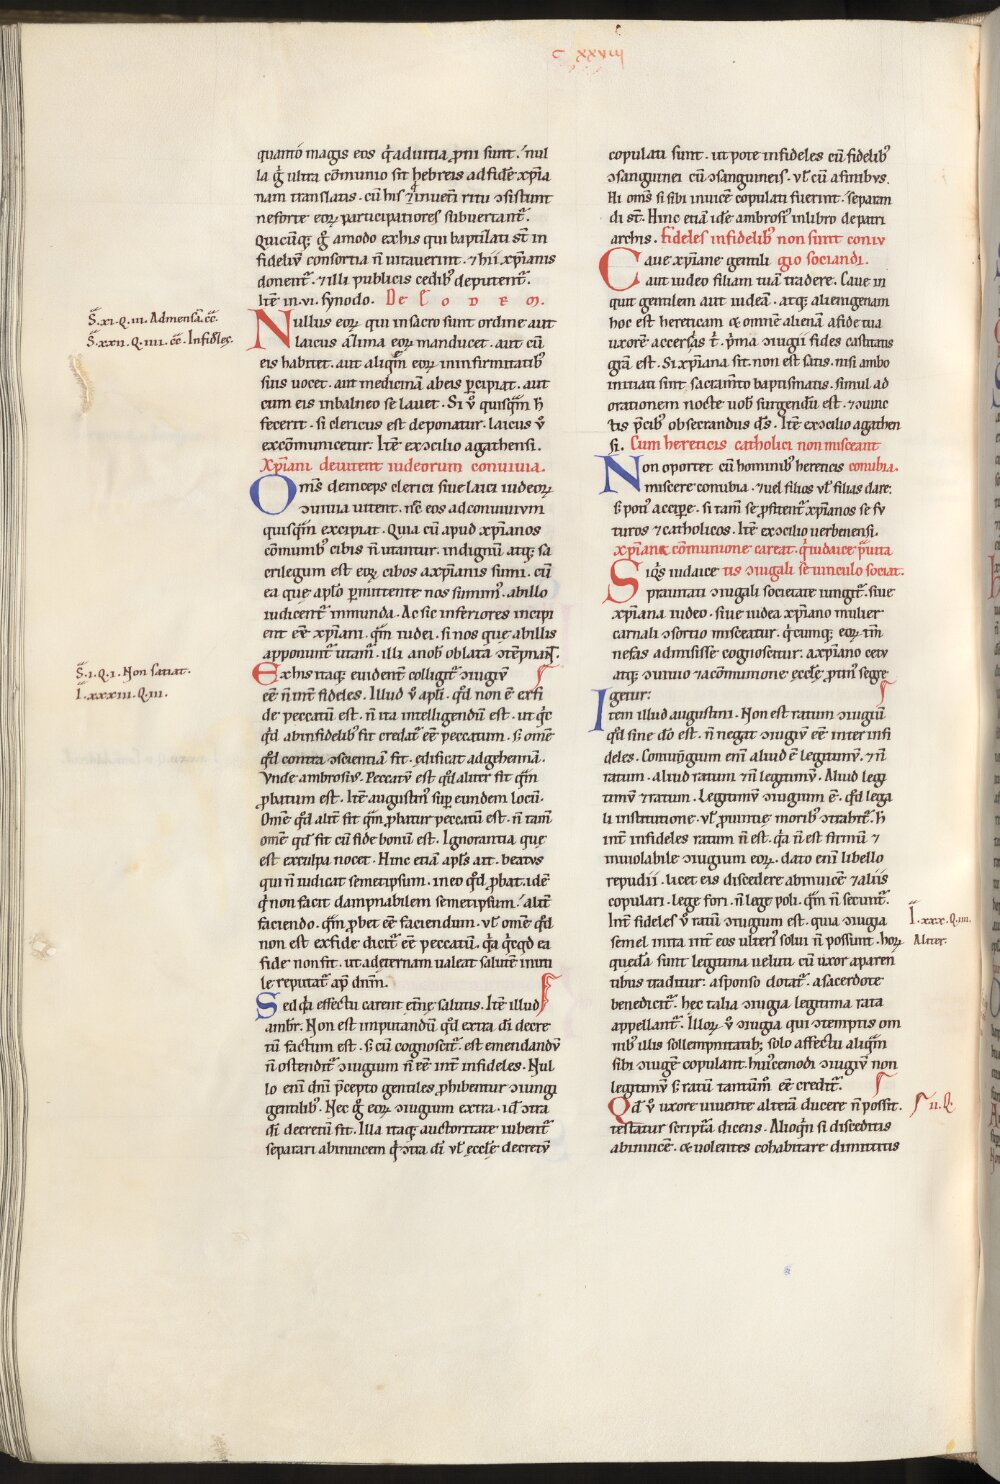 C XXVIII
quanto magis eos q̇ aduitia ꝓni sunt. nul
la ġ ultra cōmunio sit hebreis ad fidē xp̄ia
nam translatis. cū his q̇ in uetı̄ ritu ↄsistunt
ne forte eoꝝ participatiōes subuertantr̄.
Quicūq; ġ amodo ex his qui baptizati st̄ in
fideliū consortia n̄ uitauerint. ⁊ hii xp̄ianis
donentr̄. ⁊ illi publicis cedib; deputentr̄.
Itē in .vi. synodo. De eodem.
Nullus eoꝝ qui in sacro sunt ordine aut
laicus azima eoꝝ manducet. aut cū
eis habitet. aut aliqm̄ eoꝝ in infirmitatib;
suis uocet. aut medicinā ab eis ꝑcipiat. aut
cum eis in balneo se lauet. Si v̊ quisqm̄ h̄
fecerit. si clericus est deponatur. laicus v̊
excōmunicetur. Itē ex ↄcilio agathensi.
Xp̄iani deuitent iudeorum conuiuia.
Om̄s deinceps clerici siue laici iudeoꝝ
ↄuiuia uitent. nec̄ eos ad conuiuium
quisqm̄ excipiat. Quia cū apud xp̄ianos
cōmunib; cibis n̄ utantur. indignū atq; sa
crilegum est eoꝝ cibos a xp̄ianis sumi. cū
ea que apl̄o ꝑmittente nos sumim;. ab illo
iudicentr̄ inmunda. Ac sic inferiores incipi
ent eē xp̄iani. qm̄ iudei. si nos que ab illis
apponuntr̄ utam̄. illi a nob̄ oblata ↄtēpnant.
Ex his itaq; euident̄ colligitr̄ ↄiugiū
eē n̄ int̄ fideles. Illud v̊ apl̄i. qd̄ non ē ex fi
de peccatū est. n̄ ita intelligendū est. ut qc̄
qd̄ ab infidelib; fit credatr̄ eē peccatum. s̄ omē
qd̄ contra ↄscientiā fit. edificat ad gehennā.
Vnde ambrosius. Peccatū est qd̄ aliter fit qm̄
ꝓbatum est. Itē augustin; suꝑ eundem locū.
Omē qd̄ alit̄ fit qm̄ ꝓbatur peccatū est. n̄ tam̄
omē qd̄ fit cū fide bonū est. Ignorantia que
est ex culpa nocet. Hinc etiā apl̄s ait. beatus
qui n̄ iudicat semetipsum. in eo qd̄ ꝓbat. idē
q̇ non facit dampnabilem semetipsum. alit̄
faciendo. qm̄ ꝓbet eē faciendum. vl̄ omē qd̄
non est ex fide dicitr̄ eē peccatū. q̇a q̇cqd̄ ea
fide non fit. ut ad eternam ualeat salutē inuti
le reputatr̄ ap̄ dn̄m.
Sed q̇a effectu carent etn̄ę salutis. Itē illud
ambr̄. Non est imputandū qd̄ extra dı̄ decre
tū factum est. s̄ cū cognoscitr̄. est emendandū
n̄ ostenditr̄ ↄiugium n̄ eē int̄ infideles. Nul
lo eni dn̄i p̄cepto gentiles ꝓhibentur ↄiungi
gentilib;. Nec ġ eoꝝ ↄiugium extra. id̄ ↄtra
dı̄ decretū fit. Illa itaq; auctoritate iubentr̄
separari abinuicem q̇ ↄtra dı̄ vl̄ ęcclę decretū
copulati sunt. ut pote infideles cū fidelib;
ↄsanguinei cū ↄsanguineis. vl̄ cū afinibus.
Hi om̄s si sibi inuicē copulati fuerint. separan
di st̄. Hinc etiā idē ambrosi; in libro de patri
archis. Fideles infidelib; non sunt coniu
gio sociandi.
Caue xp̄iane gentili
aut iudeo filiam tuā tradere. Caue in
quit gentilem aut iudeā. atq; alienigenam
hoc est hereticam & omnē alienā a fide tua
uxorē accersas t̄. p̄ma ↄiugii fides castitatis
gr̄a est. Si xp̄iana sit. non est satis. nisi ambo
initiati sint sacram̄to baptismatis. simul ad
orationem nocte uob̄ surgendū est. ⁊ ↄiunc
tis p̄cib; obsecrandus d̄s. Itē ex ↄcilio agathen
si. Cum hereticis catholici non misceant
Non oportet cū hominib; hereticis conubia.
miscere conubia. ⁊ vel filios vl̄ filias dare.
s̄ poti; acciꝑe. si tam̄ se ꝓfitentr̄ xp̄ianos se fu
turos ⁊ catholicos. Itē ex ↄcilio uerbenensi.
Xp̄iana cōmunione careat. q̇ iudaice p̄uita
tis ↄiugali se uinculo sociat.
Siq̄s iudaice
prauitati ↄiugali societate iungitr̄. siue
xp̄iana iudeo. siue iudea xp̄iano mulier
carnali ↄsortio misceatur. q̇cumq; eoꝝ tm̄
nefas admisisse cognoscetur. a xp̄iano cetu
atq; ↄuiuio ⁊ a cōmunione ęcclę ꝓtin; segre
getur:
Item illud augustini. Non est ratum ↄiugiū
qd̄ sine d̄o est. n̄ negat ↄiugiū eē inter infi
deles. Coniugium eni aliud ē legitimū. ⁊ n̄
ratum. aliud ratum ⁊ n̄ legitimū. Aliud legi
timū ⁊ ratum. Legitimū ↄiugium ē. qd̄ lega
li institutione. vl̄ ꝓuintię morib; ↄtrahitr̄. h̄
int̄ infideles ratum n̄ est. q̇a n̄ est firmū ⁊
inuiolabile ↄiugium eoꝝ. dato eni libello
repudii. licet eis discedere abinuicē ⁊ aliis
copulari. lege fori. n̄ lege poli. qm̄ n̄ secuntr̄.
Int̄ fideles v̊ ratū ↄiugium est. quia ↄiugia
semel inita int̄ eos ulteri; solui n̄ possunt. hoꝝ
quedā sunt legitima ueluti cū uxor a paren
tibus traditur. a sponso dotatr̄. a sacerdote
benedicitr̄. hęc talia ↄiugia legitima ⁊ rata
appellantr̄. Illoꝝ v̊ ↄiugia qui ↄtemptis om
nib; illis sollempnitatib; solo affectu aliqm̄
sibi ↄiugē copulant. hui;cemodi ↄiugiū non
legitimū s̄ ratū tantum̄ eē creditr̄.
Qd̄ v̊ uxore uiuente alterā ducere n̄ possit.
testatur scriptā dicens. Alioqn̄ si disceditis
abinuicē. & uolentes cohabitare dimittitis
S̄. xi. Q. iii. Ad mensā. cc̄.
S̄. xxii. Q. iiii. cc̄. Infidĺes.
S̄. i. Q. i. Non satiat.
I. xxxiii. Q. iii.
I. xxx. Q. iii.
Aliter.
ii. Q.